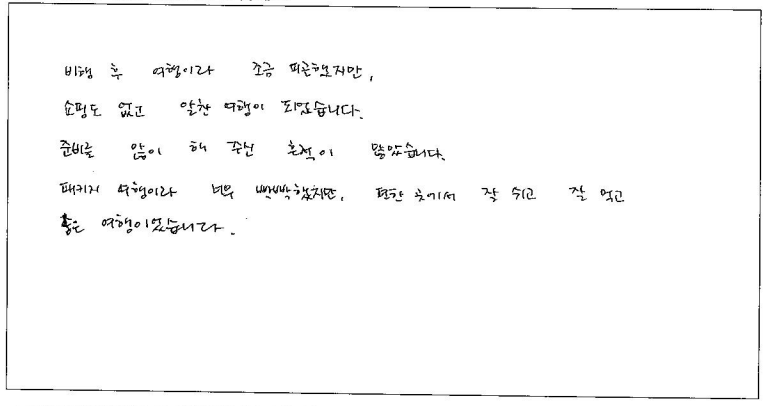 비행 후 여행이라 조금 피곤했지만,
쇼핑도 없고 알찬 여행이 되었습니다.
준비를 많이 해 주신 흔적이 많았습니다.
패키지 여행이라 너무 빡빡했지만, 편한 곳에서 잘 쉬고 잘 먹고
좋은 여행이었습니다.